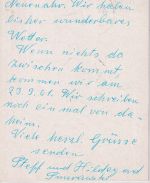 Neuenahr. Wir haben
bisher wunderbares
Wetter.
Wenn nichts da
zwischen kommt,
kommen wir am
29.9.61. Wir schreiben
noch einmal von da-
heim.
Viele herzl. Grüsse
senden
Steff und Hildegard